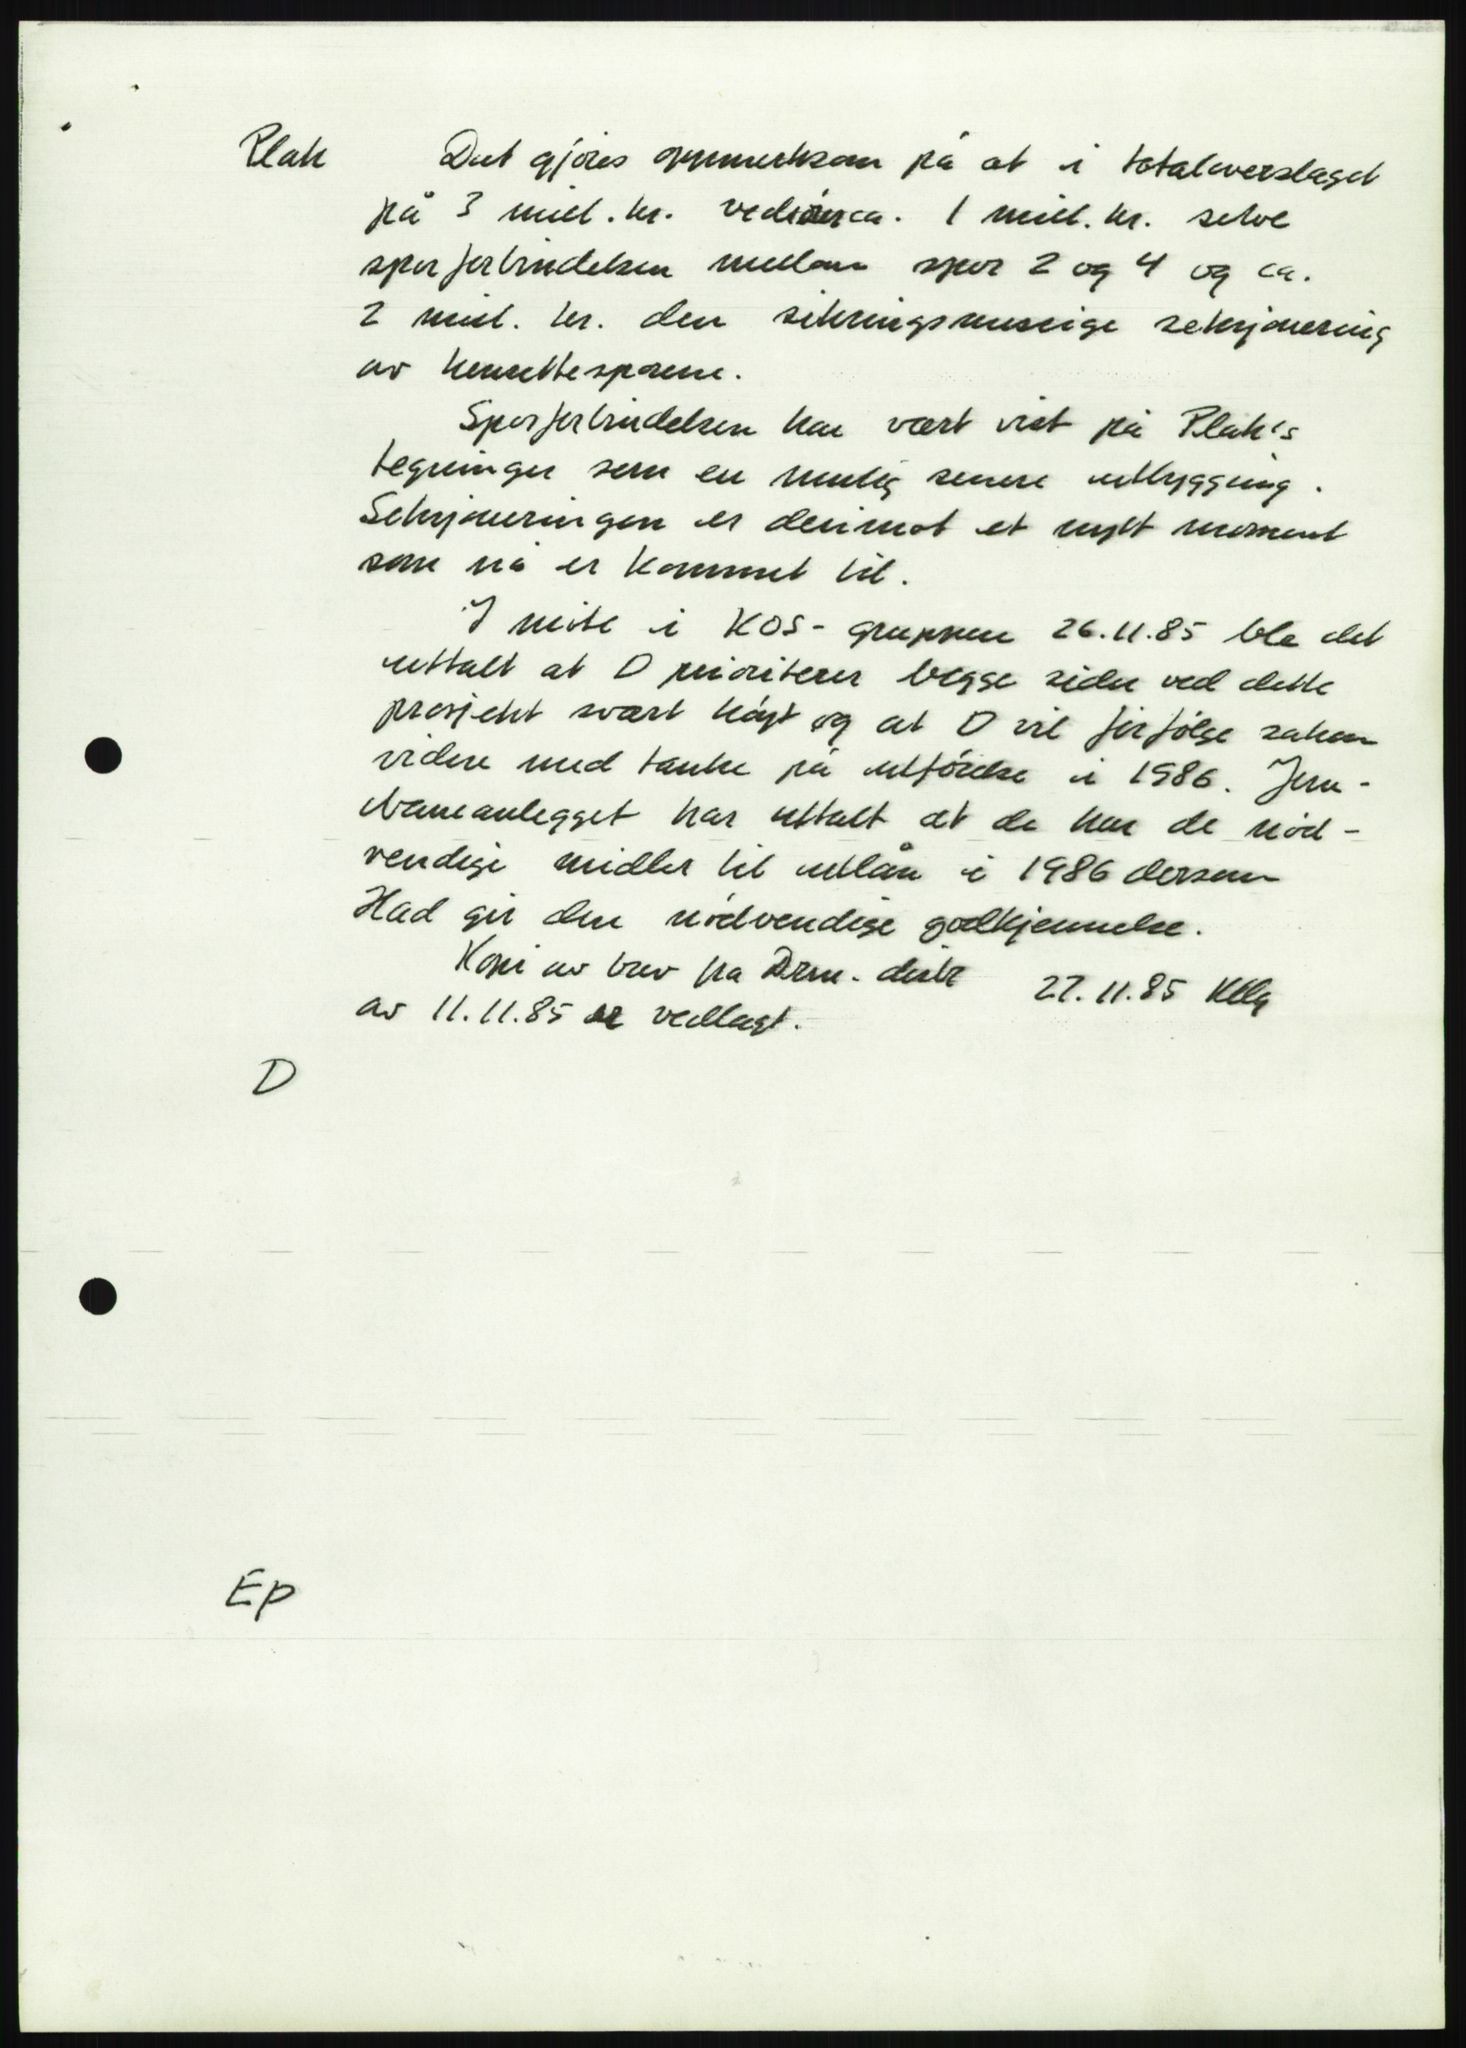 Plak Det gjöres oppmerksom på at i totaloverslaget
på 3 mill. kr. vedrörer ca. 1 mill. kr. selve
sporforbindelsen mellom spor 2 og 4 og ca.
2 mill. kr. den sikringsmessige seksjonering
av hensettesporene.
Sporforbindelsen har vært vist på Plak's
tegninger som en mulig senere utbygging.
Seksjoneringen er derimot et nytt moment
som nå er kommet til.
I möte i KOS-gruppen 26.11.85 ble det
uttalt at D prioriterer begge sider ved dette
prosjekt svært höyt og at D vil forfölge saken
videre med tanke på utförelse i 1986. Jern-
baneanlegget har uttalt at de har de nöd-
vendige midler til utlån i 1986 dersom
Had gir den nödvendige godkjennelse.
Kopi av brev fra Drm. distr 27.11.85
av 11.11.85 er vedlagt.
D
Ep